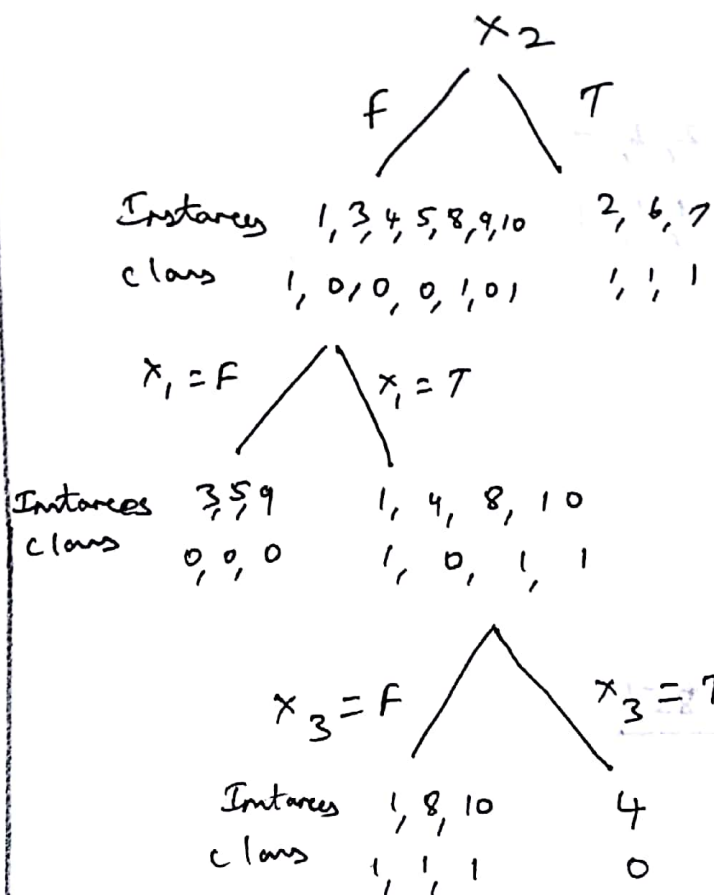 X2
F T
Instances 1, 3, 4, 5, 8, 9, 10 2, 6, 7
class 1, 0, 0, 0, 1, 0, 1 1, 1, 1
X1 = F X1 = T
Instances 3, 5, 9 1, 4, 8, 10
class 0, 0, 0 1, 0, 1, 1
X3 = F X3 = T
Instances 1, 8, 10 4
class 1, 1, 1 0